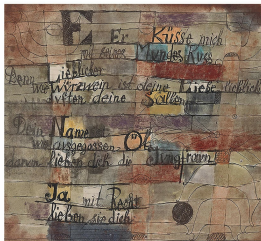 E Er Küsse mich
mit seines Mundes Kuss
Denn lieblicher
wie würzwein ist deine Liebe lieblich
duften deine Salben
Dein Name ist
wie ausgegossen Öl
darum lieben dich die Jungfraun!
Ja mit Recht
lieben sie dich